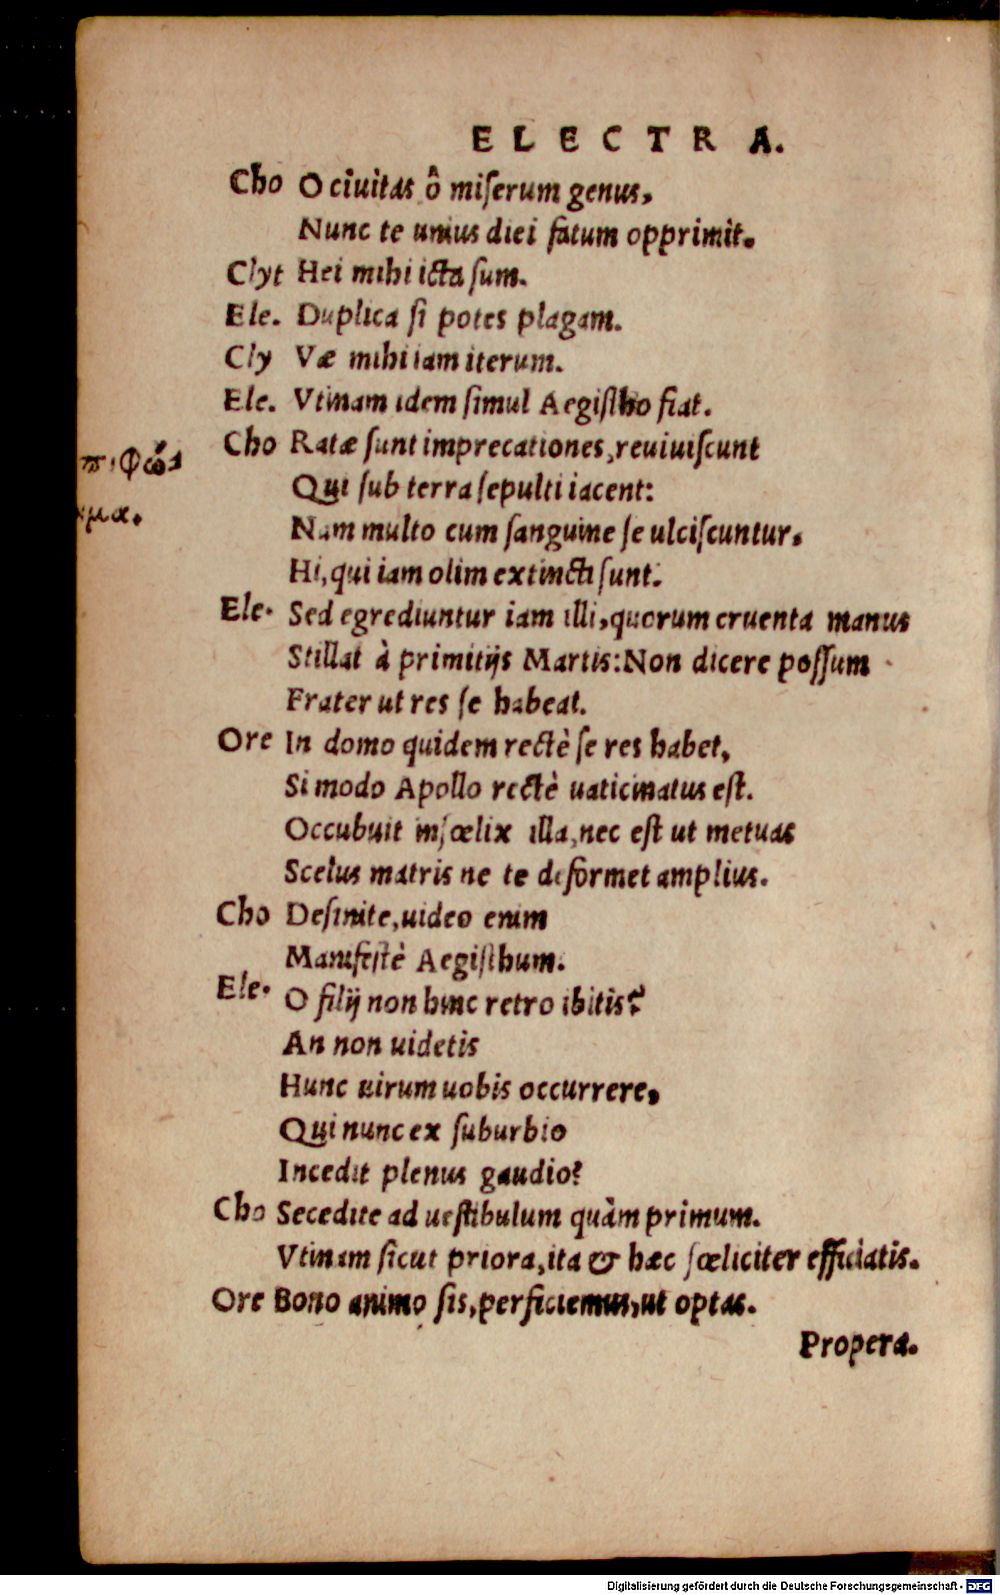 ELECTRA.
Cho O ciuitas ô miserum genus,
Nunc te unius diei fatum opprimit.
Clyt Hei mihi icta sum.
Ele. Duplica si potes plagam.
Cly Væ mihi iam iterum.
Ele. Vtinam idem simul Aegistho fiat.
Cho Ratæ sunt imprecationes, reuiuiscunt
Qui sub terra sepulti iacent:
Nam multo cum sanguine se ulciscuntur,
Hi, qui iam olim extincti sunt.
Ele. Sed egrediuntur iam illi, quorum cruenta manus
Stillat à primitijs Martis: Non dicere possum
Frater ut res se habeat.
Ore In domo quidem rectè se res habet,
Si modo Apollo rectè uaticinatus est.
Occubuit infœlix illa, nec est ut metuas
Scelus matris ne te deformet amplius.
Cho Desinite, uideo enim
Manifestè Aegisthum.
Ele. O filij non hinc retro ibitis?
An non uidetis
Hunc uirum uobis occurrere,
Qui nunc ex suburbio
Incedit plenus gaudio?
Cho Secedite ad uestibulum quàm primum.
Vtinam sicut priora, ita & hæc fœliciter efficiatis.
Ore Bono animo sis, perficiemus, ut optas.
Propera.
μα.
Digitalisierung gefördert durch die Deutsche Forschungsgemeinschaft - DFG